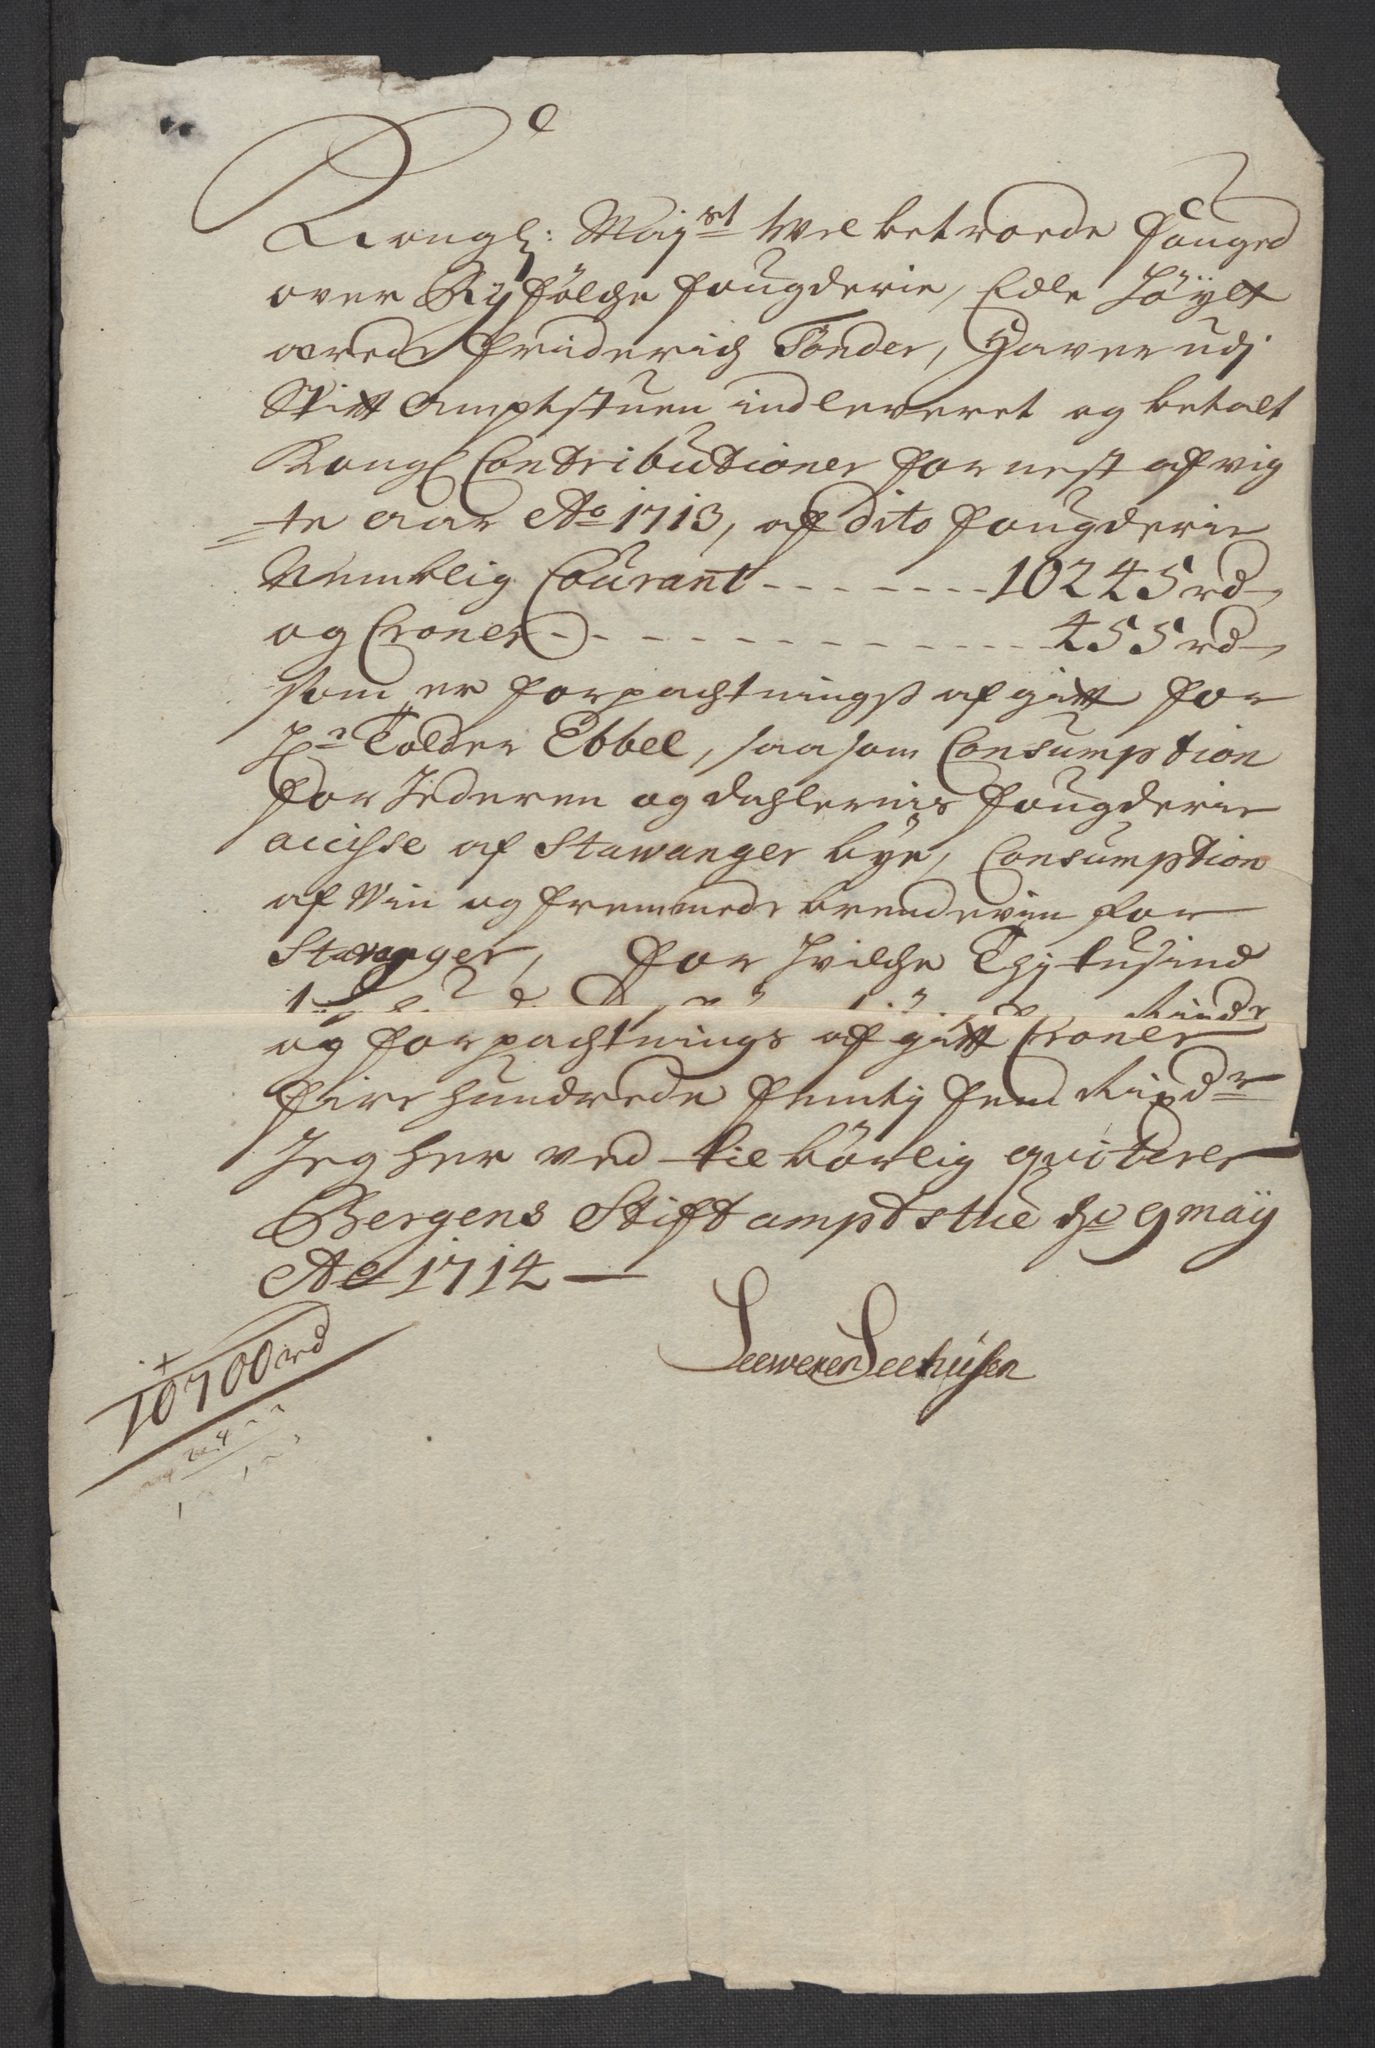 Kongl: Mayst Wel betroede fouged
over Ryfölche fougderie, Edle Höylt
ærede Friderich Tönder, Haver udj
Stift Amptstuen indleveret og betalt
Kongl Contributioner for nest afvig
te aar Ao 1713, af dito fougderie
Nemblig Courant - - - - - - - 10245 rd
og Croner - - - - - - - - - - - - 455 rd
som er forpachtningsafgift for
Hr Tolder Ebbel, saasom Consumption
for Jederen og dahlernis fougderie
accisse af Stawanger bye, Consumption
af Vin og fremmede brendeviin for
Stavanger, for hvilche Thytusind
Rixdr
og forpachtnings afgift Croner
fire hundrede femty fem Rixdr
Jeg her ved tilbörlig qviterer
Bergens Stiftamptstue de 9 maÿ
Ao 1714
Seeweren Seehusen
10700 rd